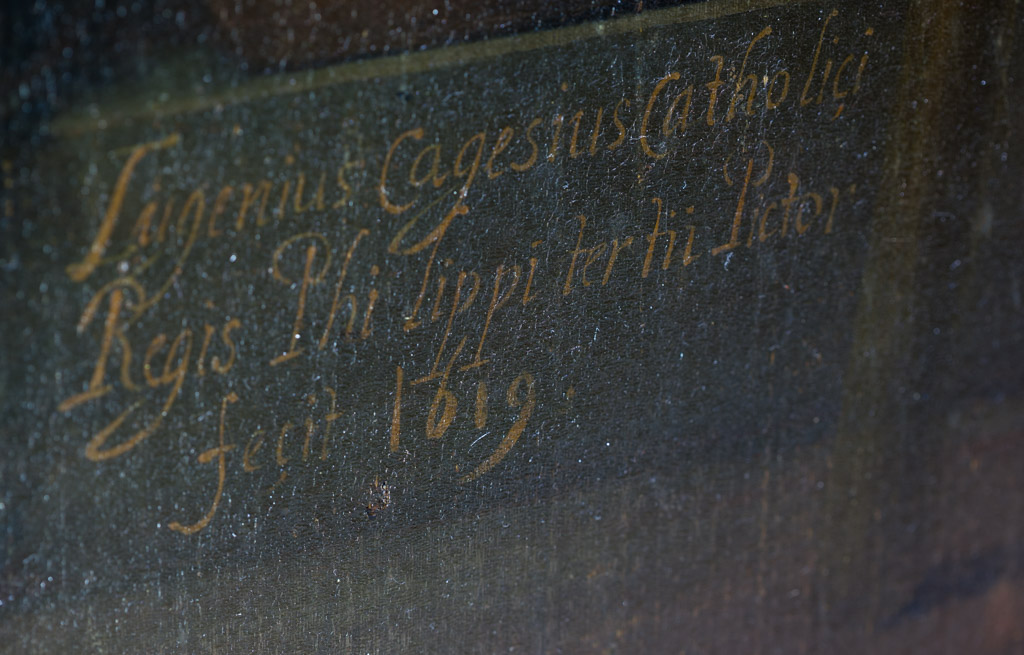 Eugenius Cagesius Catholici
Regis Phi lippi tertii Pictor
fecit 1619.